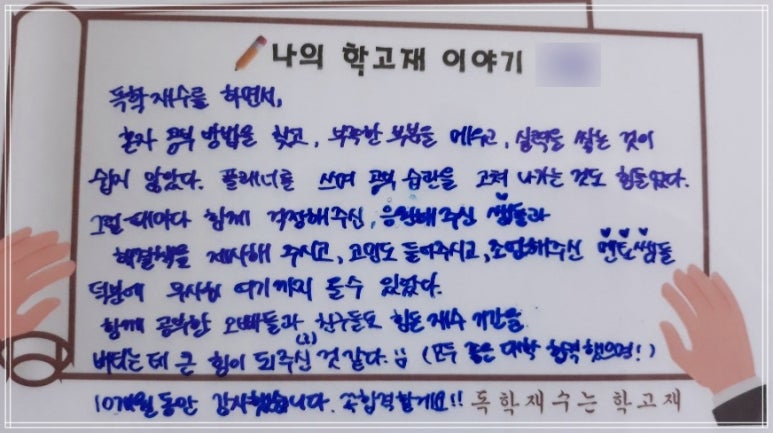 나의 학고재 이야기
독학재수를 하면서,
혼자 공부 방법을 찾고, 부족한 부분을 메우고, 실력을 쌓는 것이
쉽지 않았다. 플래너를 쓰며 공부 습관을 고쳐 나가는것도 힘들었다.
그럴때마다 함께 걱정해주신, 응원해주신 쌤들과
해결책을 제시해 주시고, 고민도 들어주시고, 조언해주신 멘토쌤들
덕분에 무사히 여기까지 올수 있었다.
함께 공부한 오빠들과 친구들도 힘든 재수 기간을
버티는 테 큰 힘이 되주신 것 같다. (모두 좋은 대학 합격했으면!)
10개월동안 감사했습니다. 꼭합격할게요!! 독학재수는 학고재